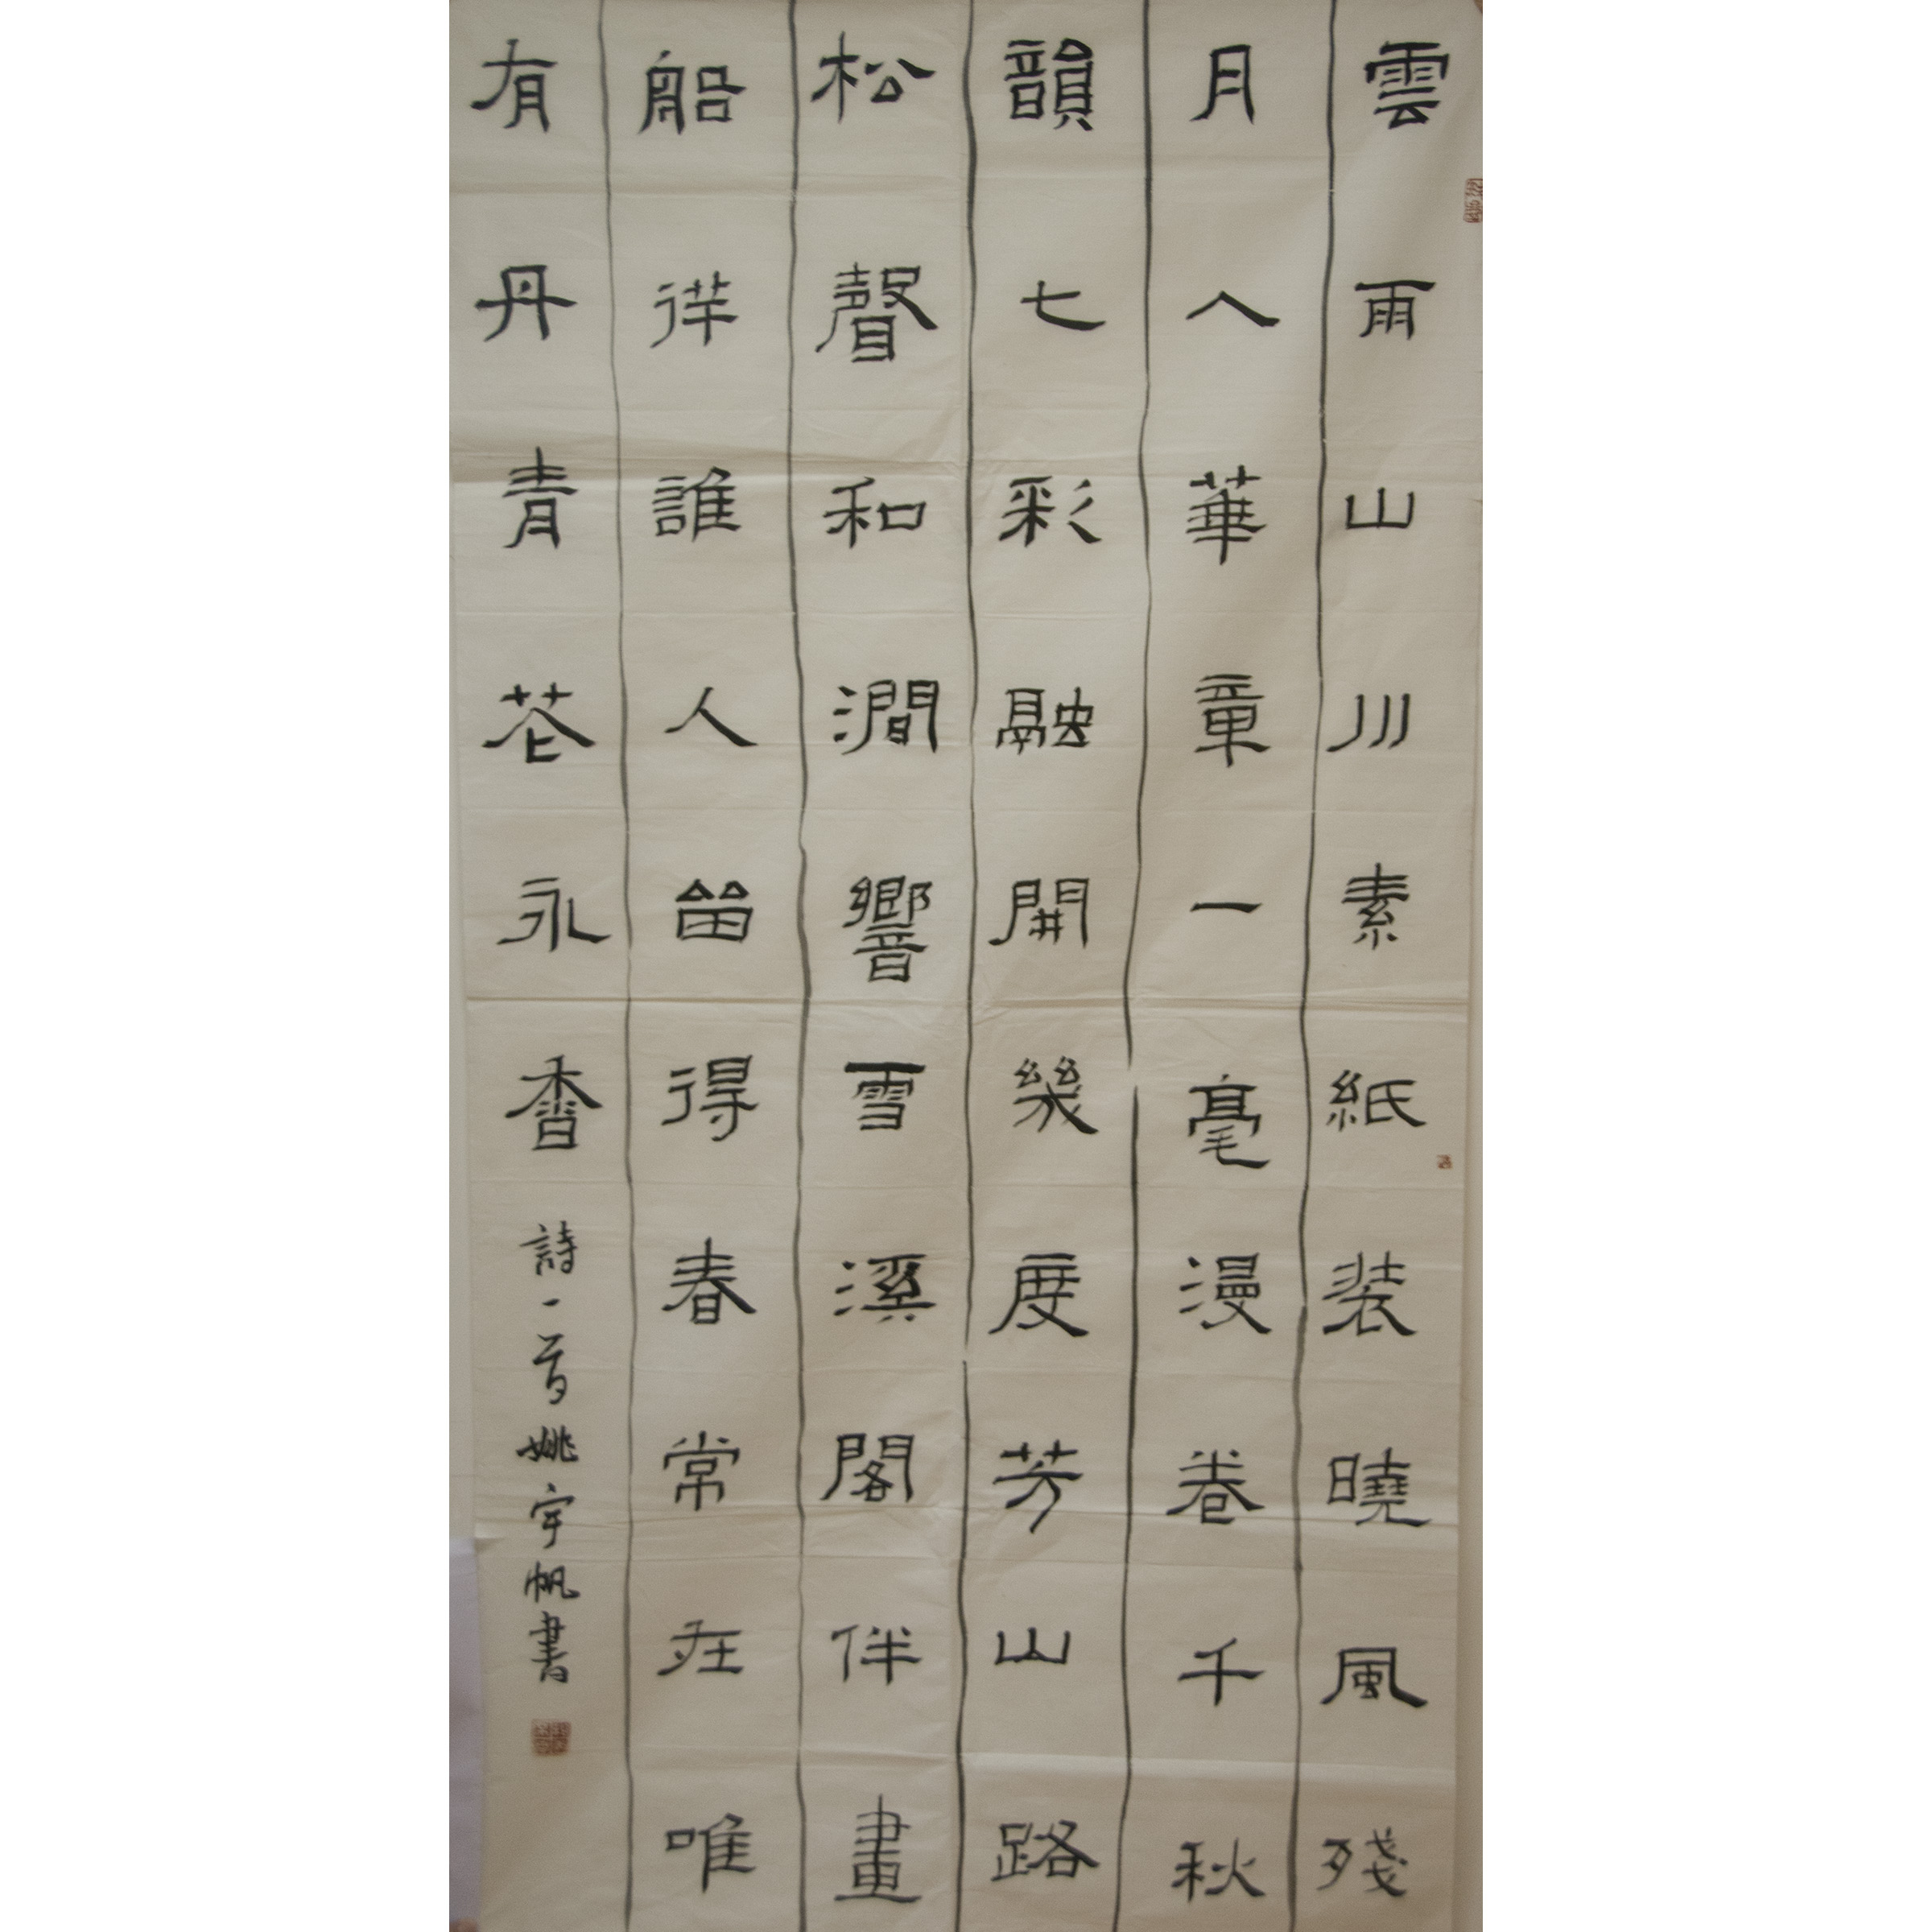 雲雨山川素紙装曉風殘
月入華章一毫漫卷千秋
韻七彩融開幾度芳山路
松聲和澗響雪溪閣伴畫
船徉誰人留得春常在唯
有丹青花永香詩一首姚宇帆書